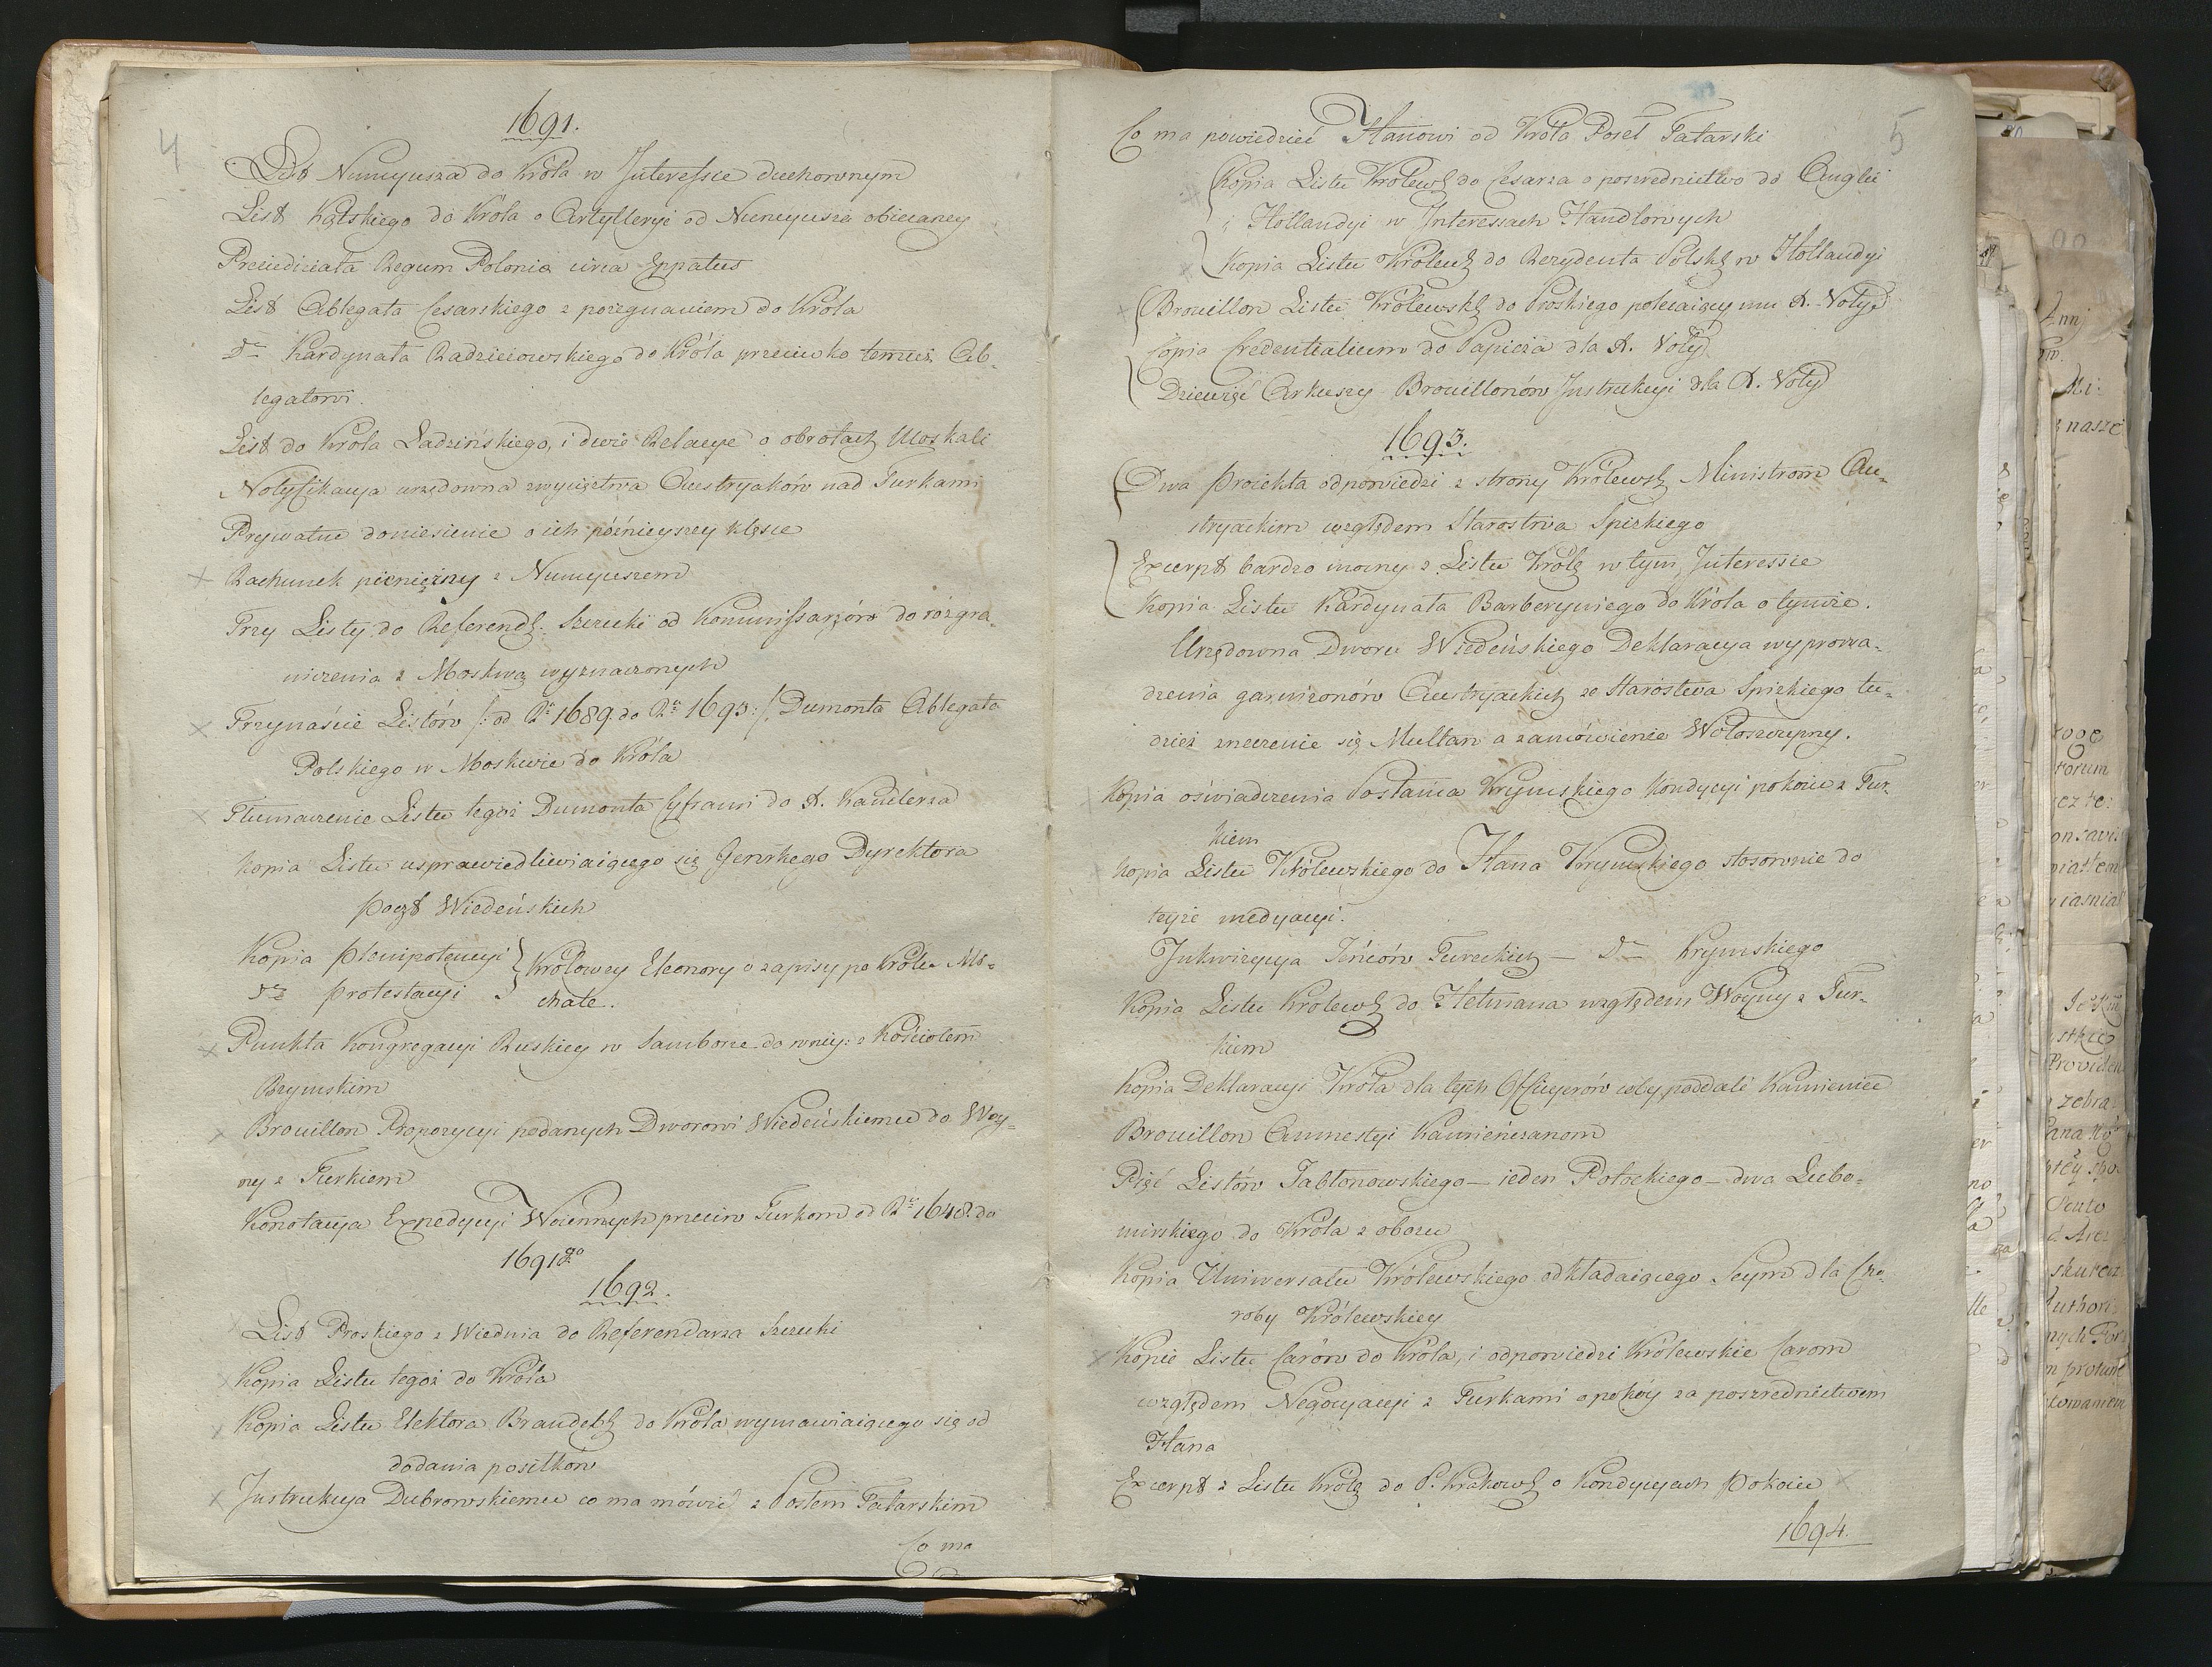 4
1691.
List Nuncyusza do Króla w Interessie duchownym
List Kątskiego do Króla o Artylleryi od Nuncyusza obiecaney
Preiudiciata Regum Poloniæ circa Eppatus
List Ablegata Cesarskiego z pożegnaniem do Króla
Dto Kardynała Radzieiowskiego do Króla przeciwko temuż Ab-
legatowi.
List do Króla Ladzińskiego, i dwie Relacye o obrotach Moskali
Notyfikacya urzędowna zwycięztwa Austryaków nad Turkami
Prywatne doniesienie o ich późnieyszey klęsce
Rachunek pieniężny z Nuncyuszem
Trzy Listy do Referend. Szczuki od Kommissarzów do rozgra-
niczenia z Moskwą wyznaczonych
Trzynaście Listów /: od Ru 1689. do Ru 1693 :/ Dumonta Ablegata
Polskiego w Moskwie do Króla
Tłumaczenie Listu tegoż Dumonta Cyframi do X. Kanclerza
Kopia Listu usprawiedliwiaiącego się Generlnego Dyrektora
Poczt Wiedeńskich
Kopia Plenipotencyi } Królowey Eleonory o zapisy po Królu Mi-
Dto Protestacyi } chale.
Punkta Kongregacyi Ruskiey w Samborze do uniy: z Kościołem
Rzymskim
Brouillon Propozycyi podanych Dworowi Wiedeńskiemu do Woy-
ny z Turkiem
Konotacya Expedycyi Woiennych przeciw Turkom od Ru 1648. do
1691go
1692.
List Proskiego z Wiednia do Referendarza Szczuki
Kopia Listu tegoż do Króla
Kopia Listu Elektora Brandeb. do Króla wymawiaiącego się od
dodania posiłków
Instrukcya Dubrowskiemu co ma mówić z Posłem Tatarskim
Co ma
5
Co ma powiedzieć Hanowi od Króla Poseł Tatarski
Kopia Listu Królewsk. do Cesarza o poszrednictwo do Anglii
i Hollandyi w Interessach Handlowych
Kopia Listu Królewsk. do Rezydenta Polsk. w Hollandyi
Brouillon Listu Królewsk. do Proskiego polecaiący mu X. Notę
Copia Credentialium do Papieża dla X. Noty
Dziewięć Arkuszy Brouillonów Instrukcyi dla X. Noty
1693.
Dwa Proiekta odpowiedzi z strony Królewsk. Ministrom Au-
stryackim względem Starostwa Spizkiego
Excerpt bardzo mocny z Listu Króla w tym Interessie
Kopia Listu Kardynała Barberyniego do Króla o tymże.
Urzędowna Dworu Wiedeńskiego Deklaracya wyprowa-
dzenia garnizonów Austryackich ze Starostwa Spizkiego tu-
dzież zrzeczenie się Multan a zamówienie Wołoszczyzny.
Kopia oświadczenia Posłańca Krymskiego Kondycyi pokoiu z Tur-
kiem
Kopia Listu Królewskiego do Hana Krymskiego stosownie do
teyże medyacyi.
Inkwizycya Jeńców Tureckich — Dto Krymskiego
Kopia Listu Królewsk. do Hetmana względem Woyny z Tur-
kiem
Kopia Deklaracyi Króla dla tych Officyerów coby poddali Kamieniec
Brouillon Amnestyi Kamieńczanom
Pięć Listów Jabłonowskiego — ieden Potockiego — dwa Lubo-
mirskiego do Króla z obozu
Kopia Uniwersału Królewskiego odkładaiącego Seym dla Cho-
roby Królewskiey
Kopie Listu Carów do Króla, i odpowiedzi Królewskie Carom
względem Negocyacyi z Turkami o pokóy za poszrednictwem
Hana
Excerpt z Listu Króla do P. Krakowsk. o Kondycyach Pokoiu
1694.